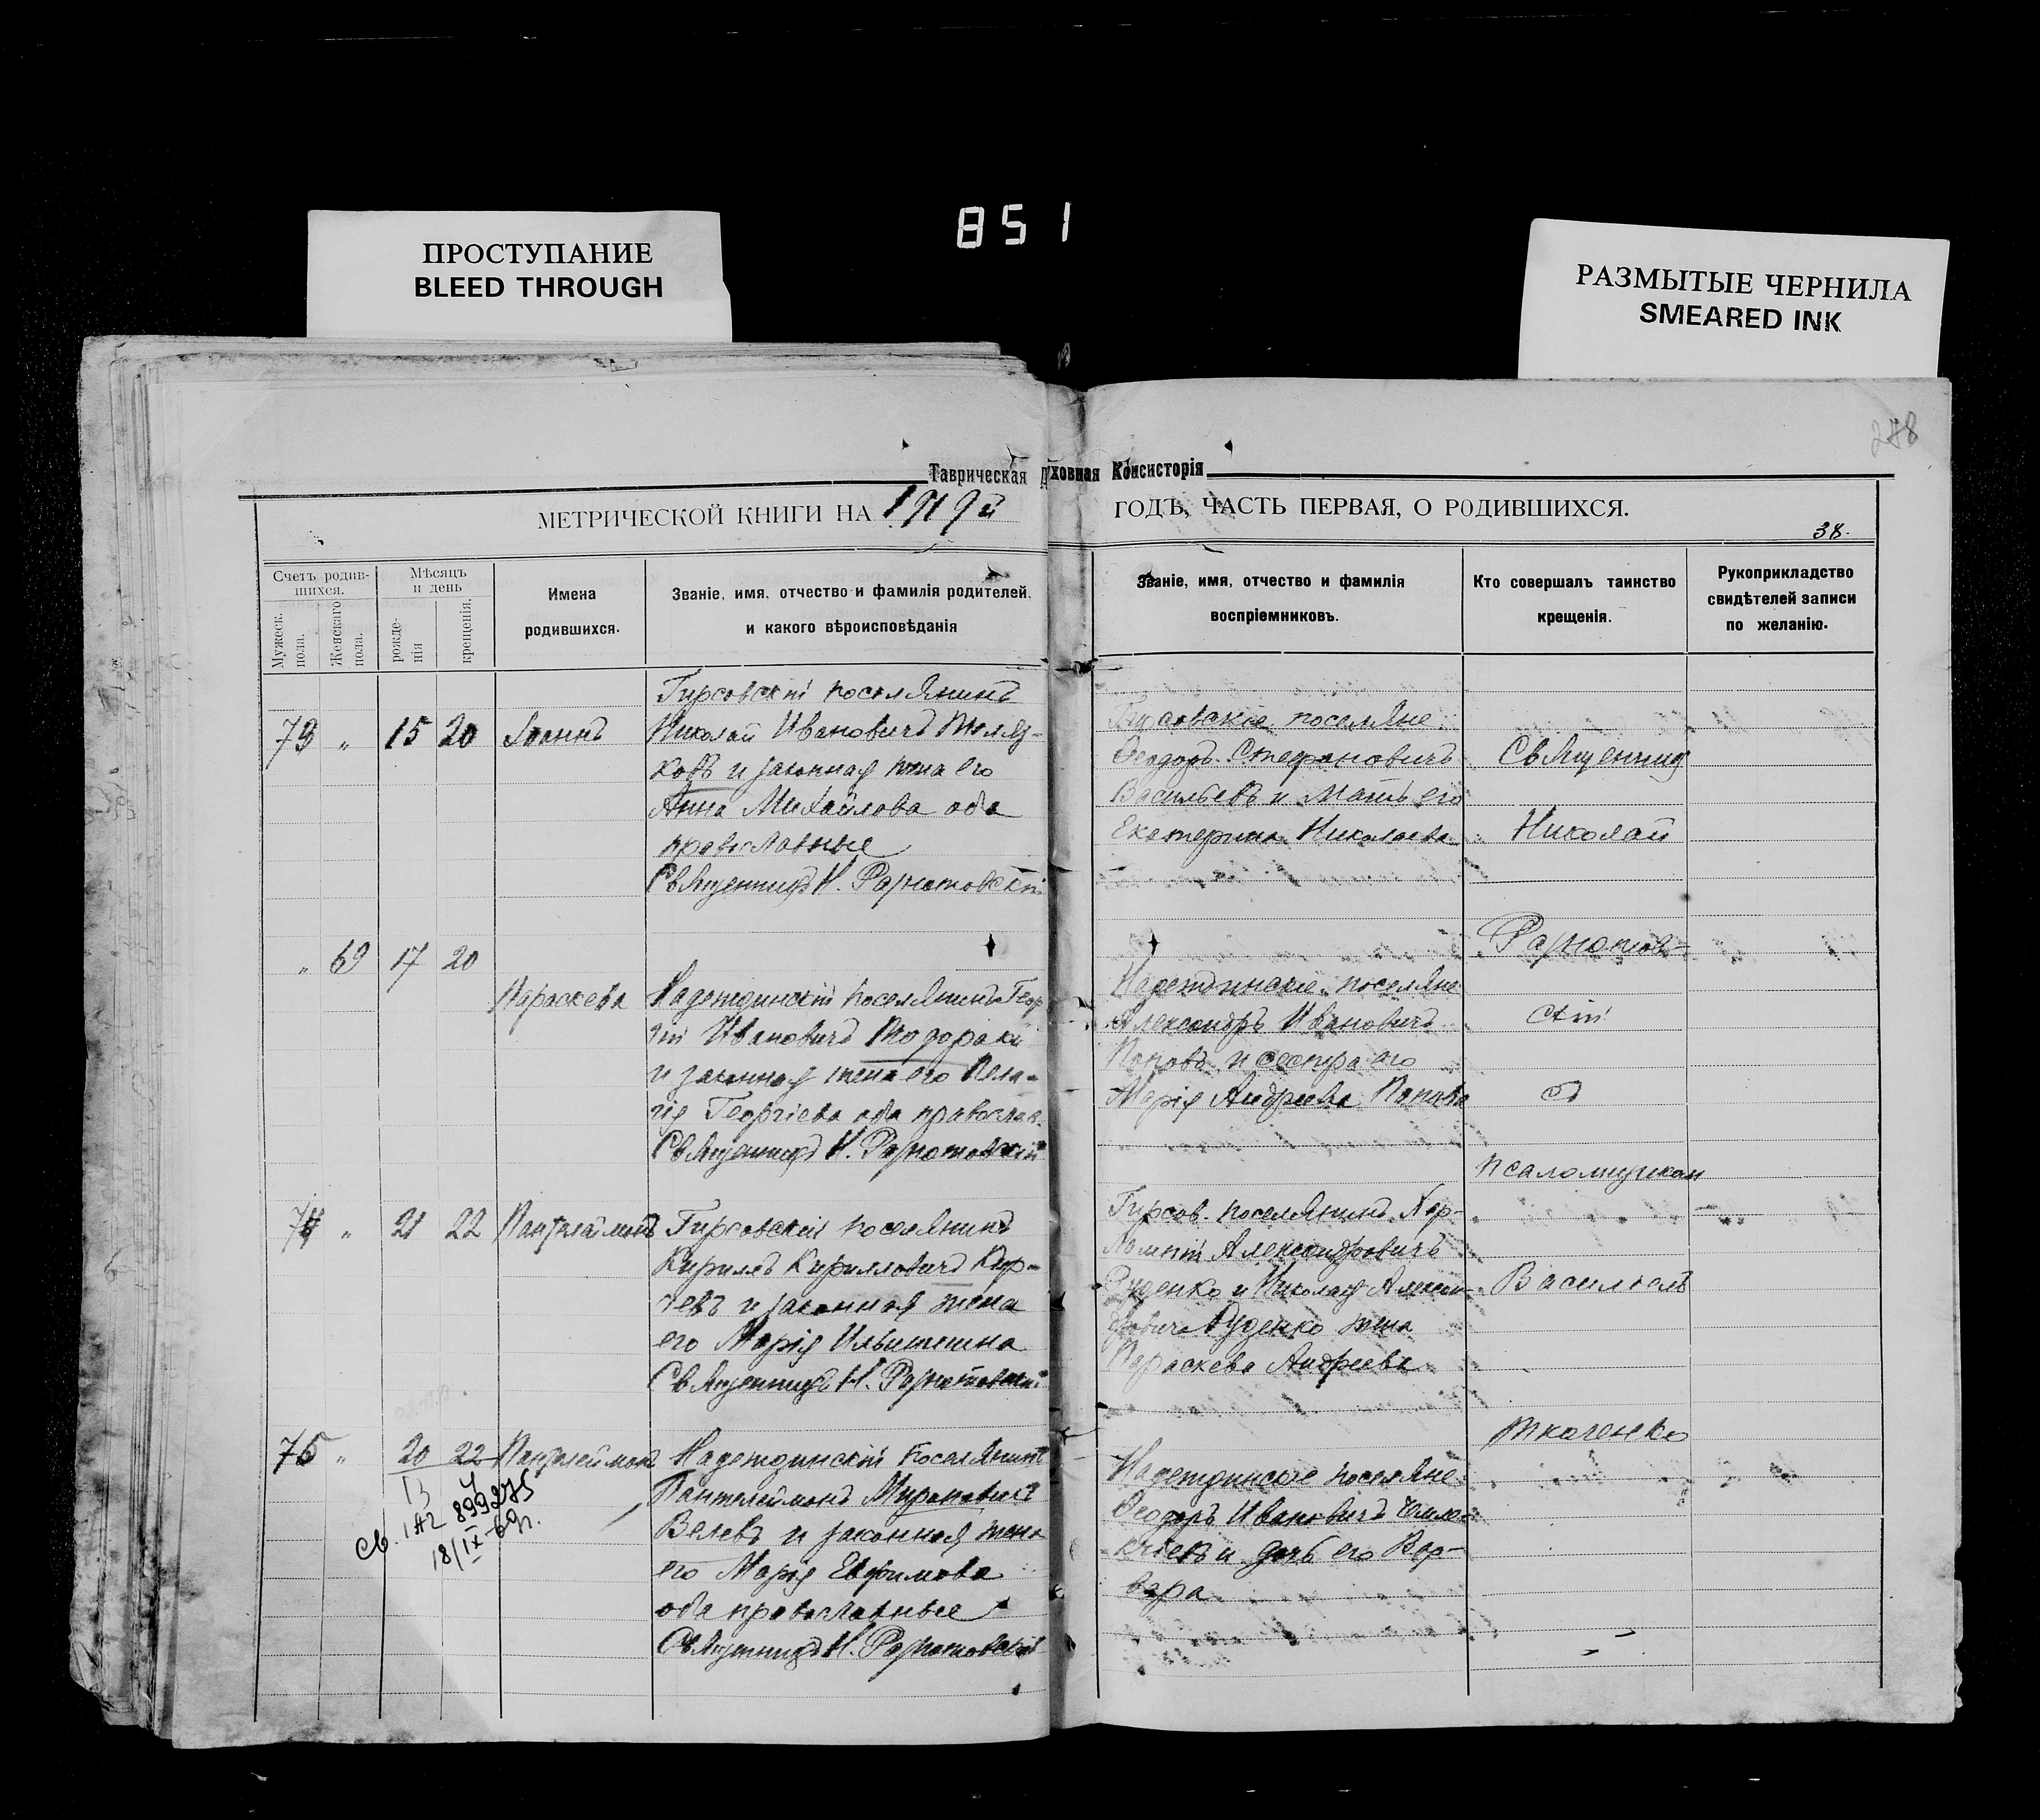 851
ПРОСТУПАНИЕ
BLEED THROUGH
РАЗМЫТЫЕ ЧЕРНИЛА
SMEARED INK
Таврическая Духовная Консисторія
МЕТРИЧЕСКОЙ КНИГИ НА 1919й ГОДЪ, ЧАСТЬ ПЕРВАЯ, О РОДИВШИХСЯ.
38.
Счетъ родив-
шихся.
Мужеск.
пола.
Женскаго
пола.
Мѣсяцъ
и день
рожде-
нія
крещенія.
Имена
родившихся.
Званіе, имя, отчество и фамилія родителей,
и какого вѣроисповѣданія
Званіе, имя, отчество и фамилія
воспріемниковъ.
Кто совершалъ таинство
крещенія.
Рукоприкладство
свидѣтелей записи
по желанію.
73 " 15 20 Іоаннъ
Гирсовскій поселянинъ
Николай Ивановичъ
и законная жена его
Анна Михайлова оба
православные
Священникъ Н.
Гирсовскіе поселяне
Феодоръ Стефановичъ
Васильевъ и мать его
Екатерина Николаева
" 69 17 20
Параскева
Надеждинскій поселянинъ Геор
гій Ивановичъ Тодораки
и законная жена его Пела-
гія Георгіева оба православ.
Священникъ Н.
Надеждинскіе поселяне
Александръ Ивановичъ
Поповъ и сестра его
Марія Андреева Попова
74 " 21 22 Пантелаймонъ
Гирсовскій поселянинъ
Кирилъ Кирилловичъ Кир-
чевъ и законная жена
его Марія
Священникъ Н.
Гирсов. поселянинъ Хар-
лампій Александровичъ
Руденко и Николая Алексан-
дровича Руденко жена
Параскева Андреева
75 " 20 22 Пантелеймонъ
Надеждинскій поселянинъ
Пантелеймонъ Мироновичъ
Велевъ и законная жена
его Марія Евфимова
оба православные
Священникъ Н.
Св. 1А2 899275
18/IX-69г.
Надеждинскіе поселяне
Феодоръ Ивановичъ
и дочь его Вар-
вара
Священникъ
Николай
скій
съ
псаломщикомъ
Василіемъ
Ткаченко